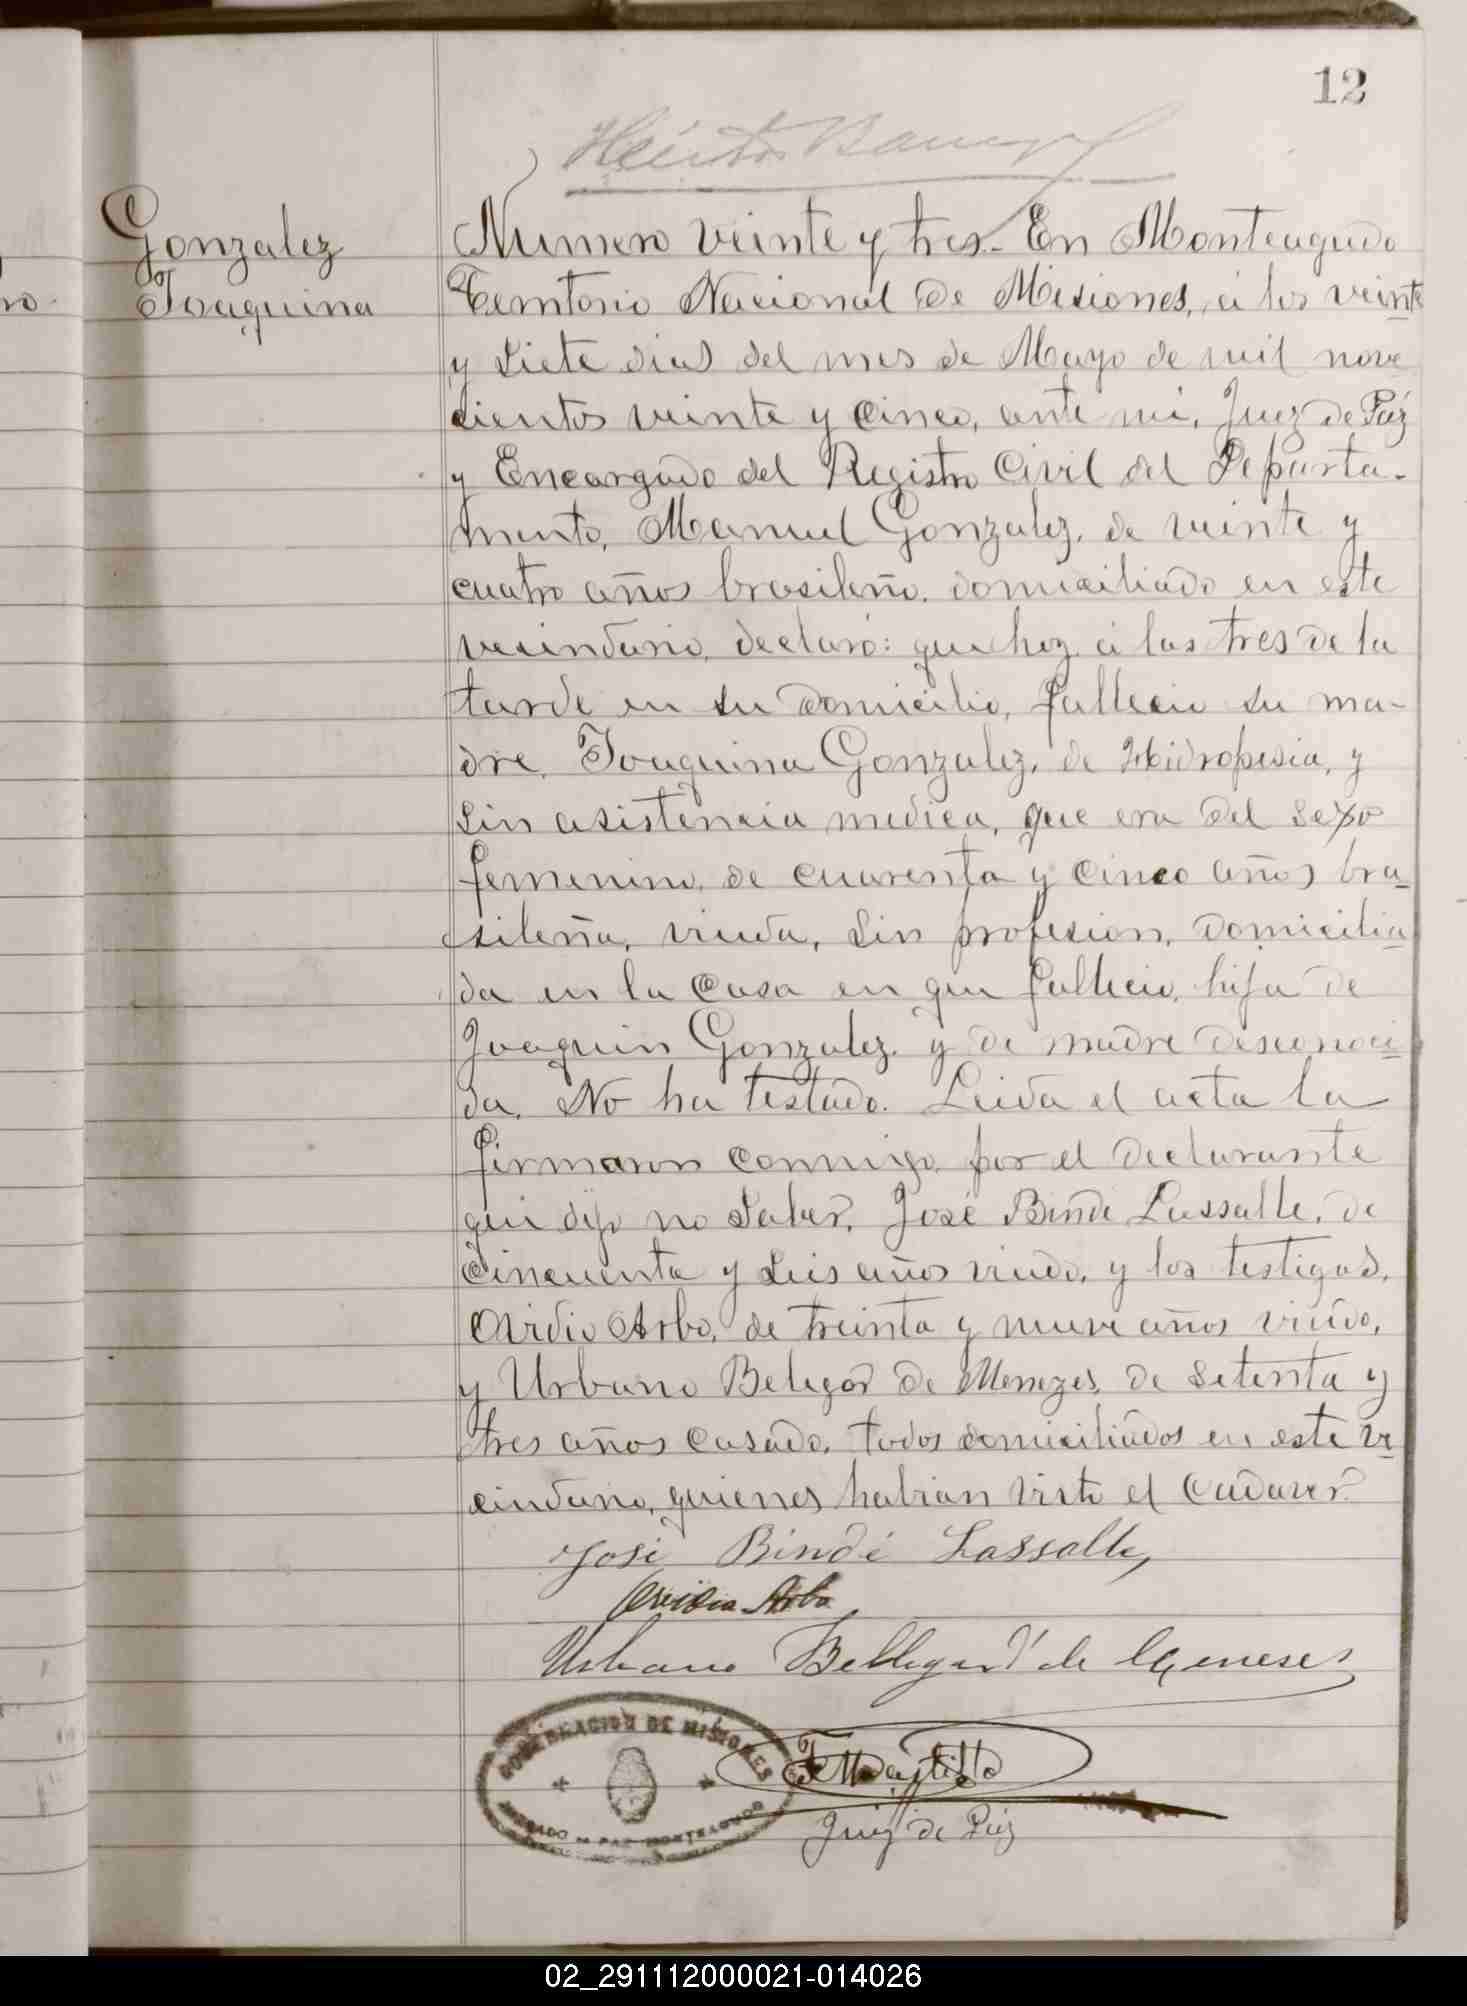 12
Gonzalez
Joaquina
Numero veinte y tres.- En Monteagudo
Territorio Nacional de Misiones, á los veinte
y siete dias del mes de Mayo de mil nove
cientos veinte y cinco, ante mi, Juez de Páz
y Encargado del Registro Civil del Departa-
mento, Manuel Gonzalez, de veinte y
cuatro años brasileño, domiciliado en este
vecindario, declaró: que hoy á las tres de la
tarde en su domicilio, fallecio su ma-
dre, Joaquina Gonzalez, de Hidropesia, y
sin asistencia medica, que era del sexo
femenino, de cuarenta y cinco años bra-
sileña, viuda, sin profesion, domicilia-
da en la casa en que fallecio, hija de
Joaquin Gonzalez y de madre desconoci-
da. No ha testado. Leida el acta la
firmaron conmigo por el declarante
que dijo no saber, José Bindé Lassalle, de
cincuenta y seis años viudo, y los testigos,
Ovidio Arbo, de treinta y nueve años viudo,
y Urbano Belegar de Menezes, de setenta y
tres años casado, todos domiciliados en este ve-
cindario, quienes habian visto el cadaver.
José Bindé Lassalle,
Ovidio Arbo
Urbano Bellegard de Meneses
GOBERNACION DE MISIONES
JUZGADO DE PAZ MONTEAGUDO
Juez de Páz
02_291112000021-014026